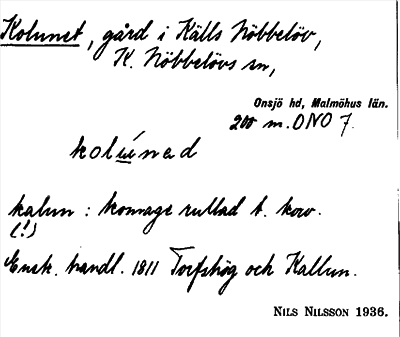 Kolunet, gård i Källs Nöbbelöv,
K. Nöbbelövs sn,
Onsjö hd, Malmöhus län.
200 m. ONO 7.
kolúnad
kalun : komage rullad t. korv.
(!)
Ensk. handl. 1811 Torfshög och Kallun.
NILS NILSSON 1936.